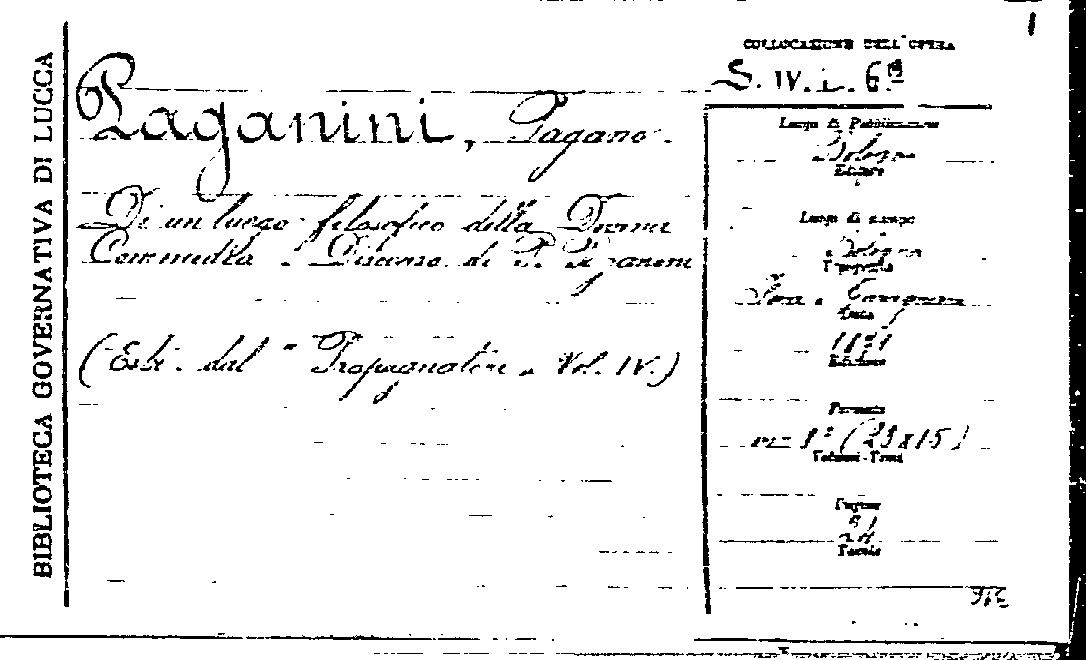 BIBLIOTECA GOVERNATIVA DI LUCCA
1
COLLOCAZIONE DELL'OPERA
S. IV. i. 6.
Paganini, Pagano.
Di un luogo filosofico della Divina
Commedia. Discorso di P. Paganini
(Estr. dal "Propugnatore" Vol. IV.)
Luogo di Pubblicazione
Bologna
Editore
Luogo di stampa
Bologna
Tipografia
Data
1871
Edizione
Formato
in 8° (23x15)
Volumi-Tomi
Pagine
Tavole